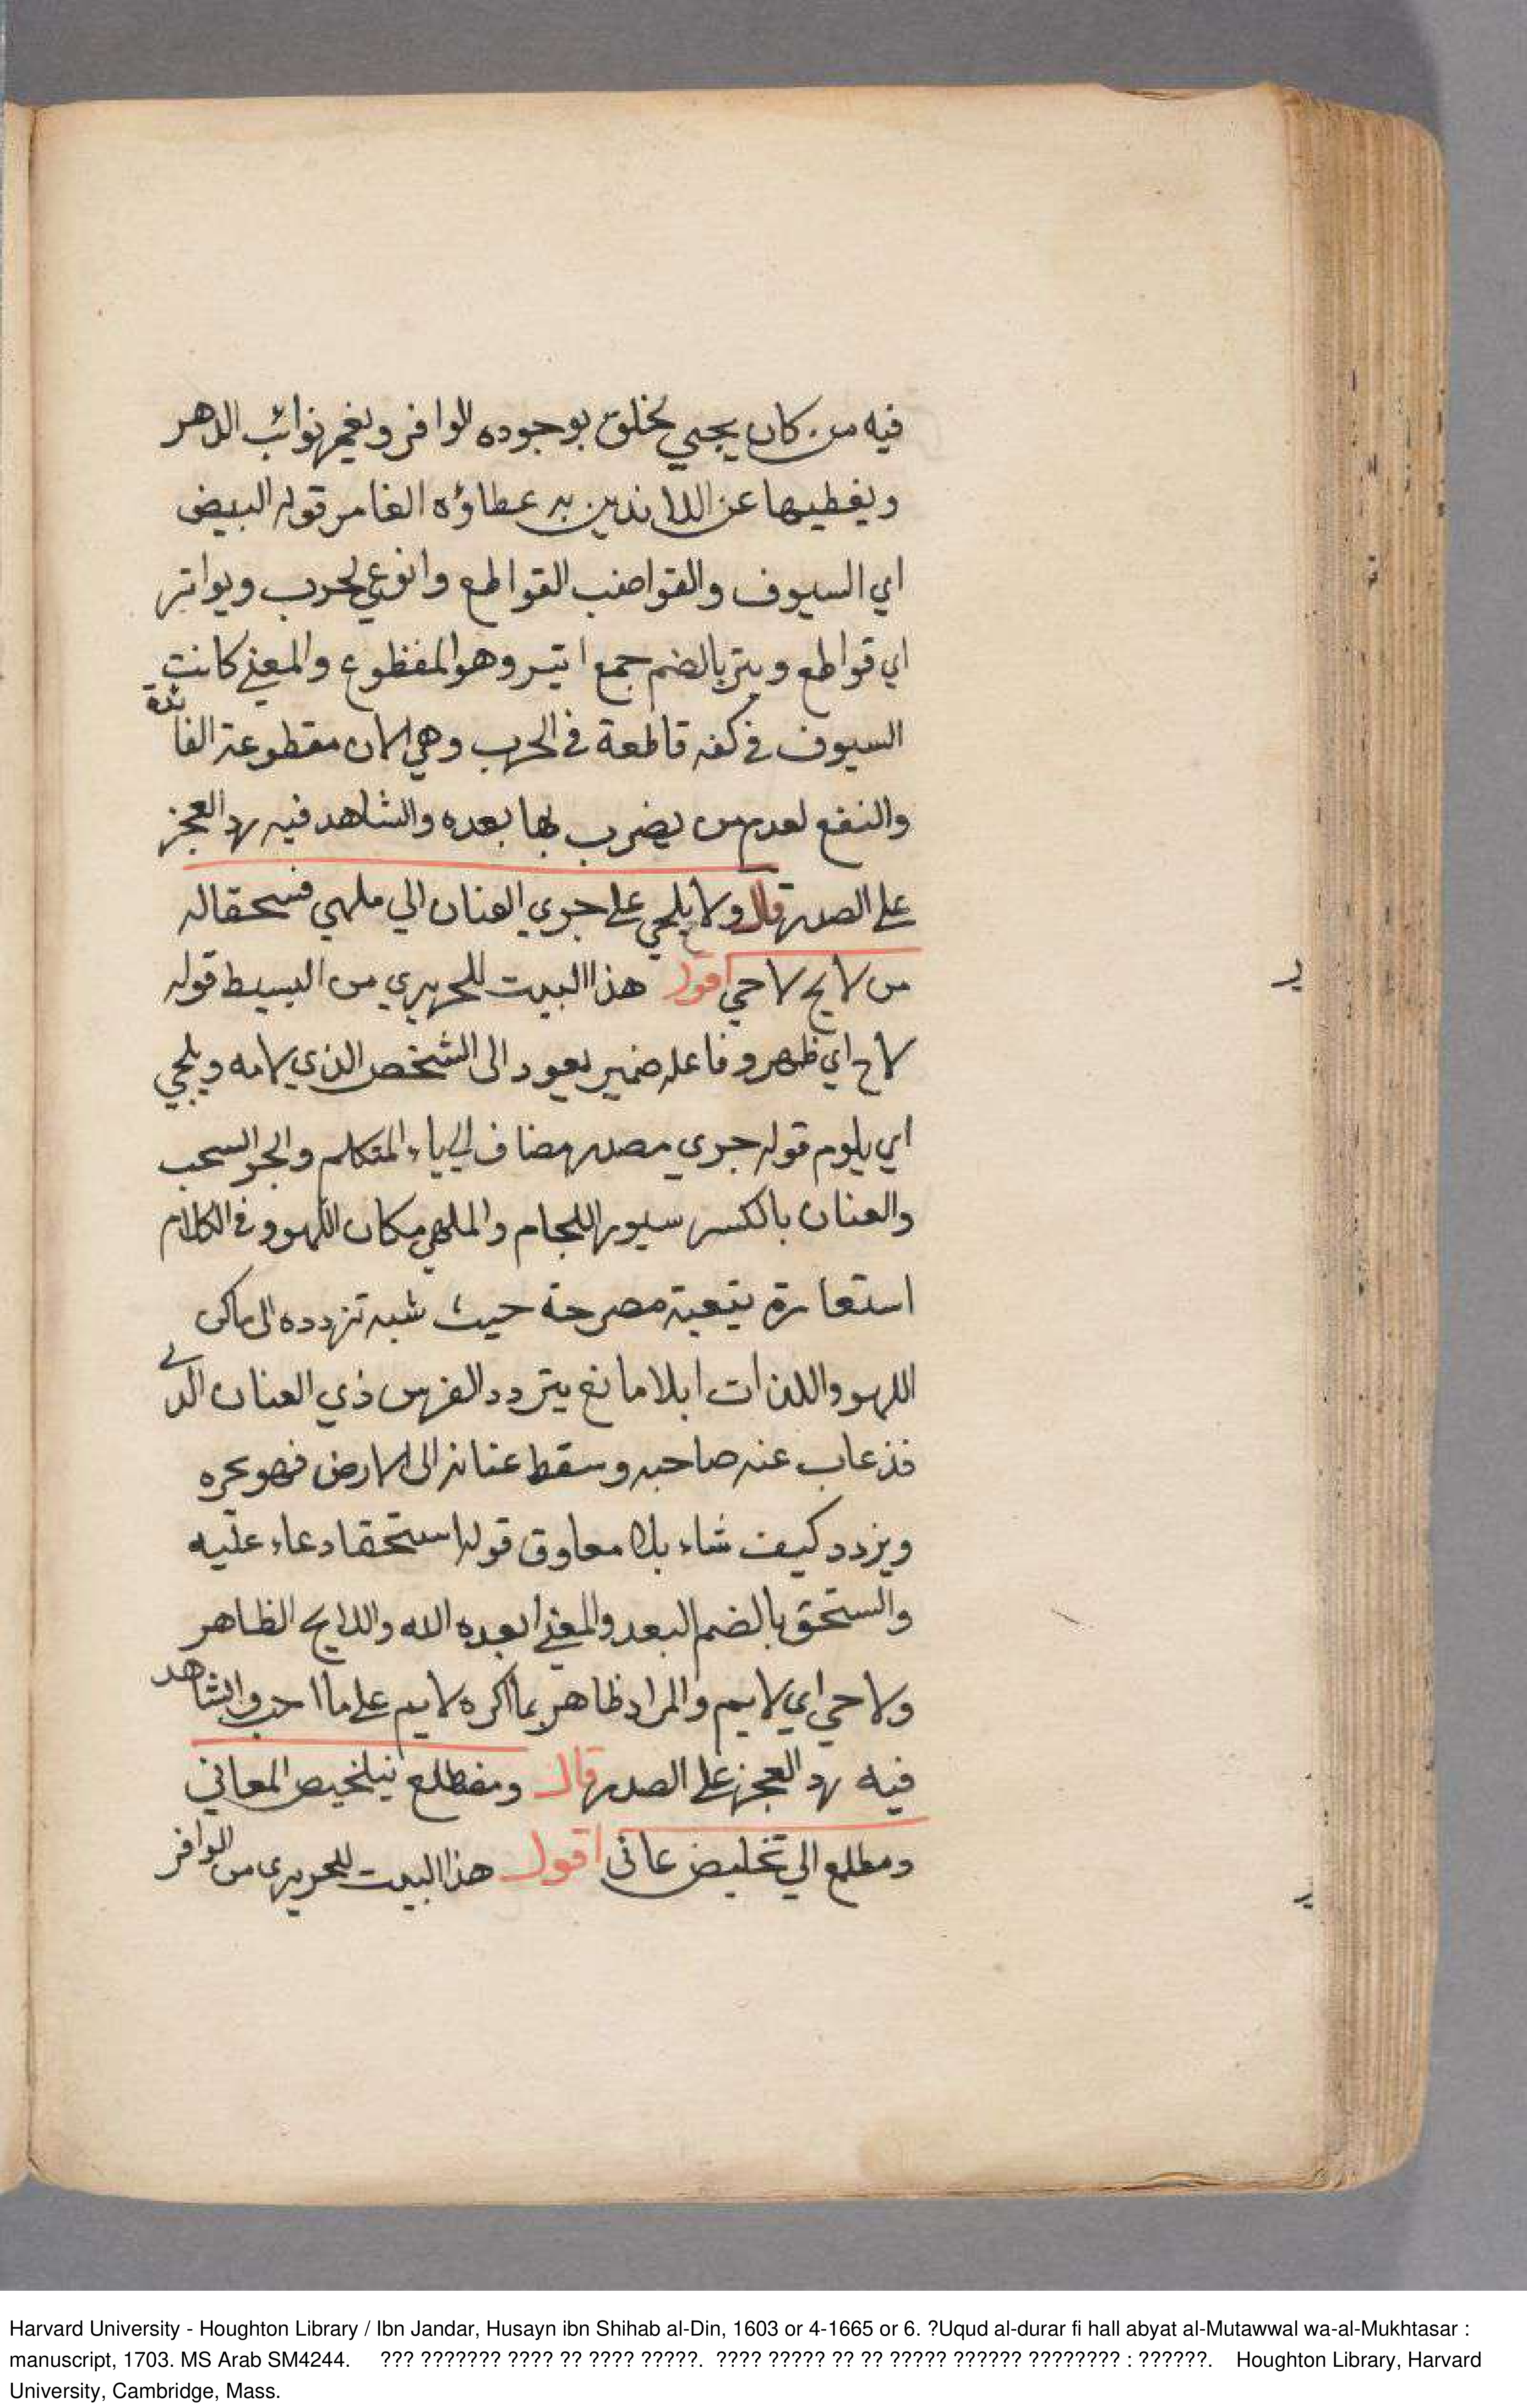 فيه من كان يحيي لخلق بوجوده الوافر ويغمر نوائب الدهر
ويغطيها عن اللائذين به عطاؤه الغامر قوله البيض
اي السيوف والقواضب القواطع والوغي لحرب وبواتر
اي قواطع وبتر بالضم جمع ابتر وهو المقطوع والمعني كانت
السيوف في كفه قاطعة في الحرب وهي الان مقطوعة الفائدة
والنفع لعدم من يضرب بها بعده والشاهد فيه رد العجز
على الصدر قال ولاح يلحي على جري العنان الي ملهي فسحقا له
من لايح لاحي اقول هذا البيت للحريري من البسيط قوله
لاح اي ظهر وفاعله ضمير يعود الى الشخص الذي لامه ويلحي
اي يلوم قوله جري مصدر مضاف الي ياء المتكلم والجر السحب
والعنان بالكسر سيور اللجام والملهي مكان اللهو وفي الكلام
استعارة تبعية مصرحة حيث شبه تردده الى اماكن
اللهو واللذات ابلا مانع يتردد الفرس ذي العنان الذي
قد غاب عنه صاحبه وسقط عنانه الى الارض فهو يجره
ويردد كيف شاء بلا معاوق قوله استحقا دعاء عليه
والستحق بالضم البعد والمعني ابعده الله واللايح الظاهر
ولاحي اي لايم والمراد ظاهر بما اكره لايم على ما احب والشاهد
فيه رد العجز على الصدر قال ومضطلع بتلخيص المعاني
ومطلع الي تخليص عاني اقول هذا البيت للحريري من الوافر
Harvard University - Houghton Library / Ibn Jandar, Husayn ibn Shihab al-Din, 1603 or 4-1665 or 6. ?Uqud al-durar fi hall abyat al-Mutawwal wa-al-Mukhtasar :
manuscript, 1703. MS Arab SM4244. ??? ??????? ???? ?? ???? ?????. ???? ????? ?? ?? ????? ?????? ???????? : ??????. Houghton Library, Harvard
University, Cambridge, Mass.